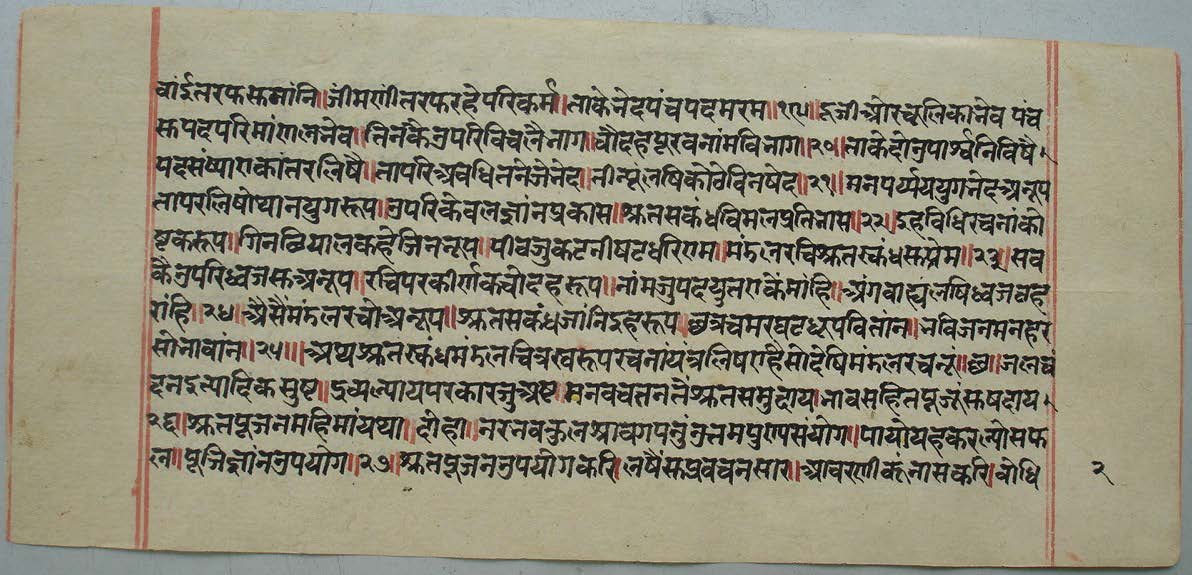 वांईतरफसुजांनि॥जीमणीतरफरहेपरिकर्म॥ताकेभेदपंचपदमरम॥१९॥दूजीओरचूलिकाभेव पंच
सुपदपरिमांणलभेव॥तिनकैउपरिविचलैभाग॥चौदहपूरवनांमविभाग॥२०॥ताकेदोउपार्श्वनिविषै
पदसंष्याएकांतरलिषै॥तापरिअवधितनेजेभेद॥तीन्यूलषिकैठेविनषेद॥२१॥मनपर्य्ययुगभेदअनूप
तापरलिषोथानयुगरूप॥उपरिकेवलज्ञांनप्रकास॥श्रुतसकंधविमलप्रतिभास॥२२॥इहविधिरचनांको
ष्टकरूप॥गिनल्यिालकहेजिनभूप॥पीवजुकटनीषटधरिएम॥मंडलरचिश्रुतस्कंधसुप्रेम॥२३॥सव
कैउपरिध्वजसुअनूप॥रचिपरकीर्णकचौदहरूप॥नांमजुपदयुतराकैमांहि॥अंगवाह्यलषिध्वजवह
रांहि॥२४॥अैसैंमंडलरचौअनूप॥श्रुतसकंधजांनिइहरूप॥छत्रचमरघटधूपवितांन॥भविजनमनहर
सोभावांन॥२५॥अथश्रुतस्कंधमंडलचित्रस्वरूपरचनांयंत्रलिषणहैसोदेषिमडलरचनूं॥छ॥जलचं
दनइत्यादिकसुष्ट॥इव्यल्यायपरकारजुअष्ट॥मनवचतनतैंश्रुतसमुदाय॥भावसहितपूजूंसुषदाय
२६॥श्रुतपूजनमहिमांयथा॥दोहा॥नरभवकुलश्रावगपनुंउत्तमपुण्यसंयोग॥पायोयहकरल्योसफ
ल॥पूजिज्ञांनउपयोग॥२७॥श्रुतपूजनउपयोगकरि॥लषैंसुप्रवचनसार॥आवरणीकूंनासकरि॥वोधि
२